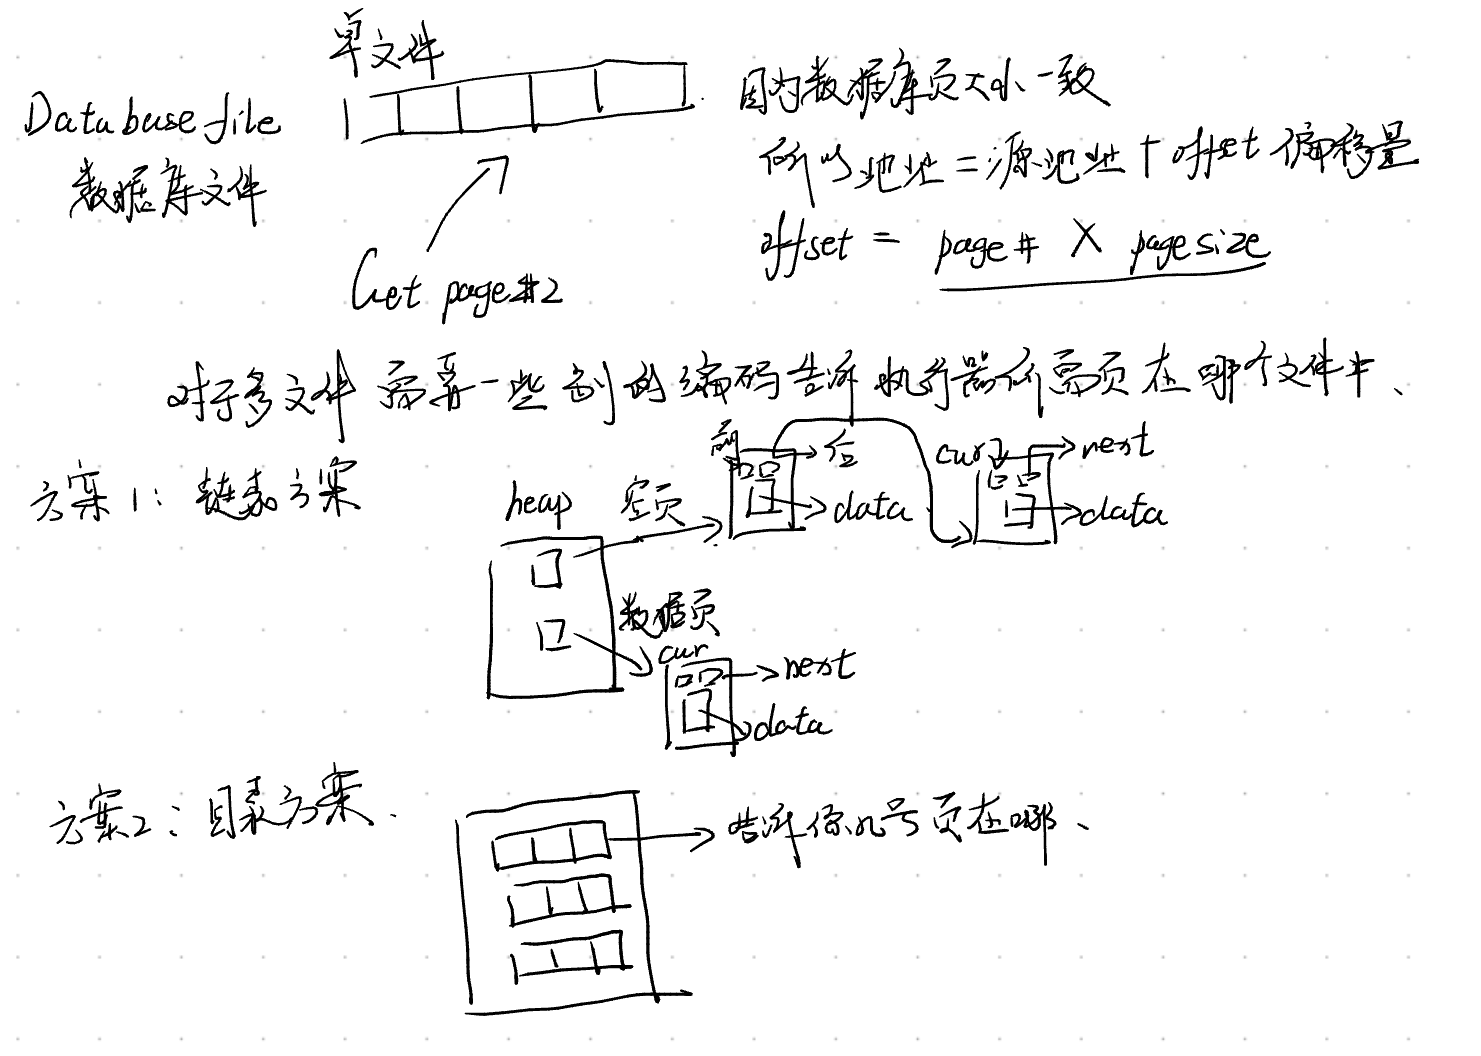 单文件
Database file
数据库文件
Get page#2
因为数据库页大小一致
所以地址=源地址+offset 偏移量
offset = page# X pagesize
对于多文件 需要一些 的编码告诉执行器所需页在哪个文件中、
方案1: 链表方案
heap
空页
前
后
data
cur
next
data
数据页
cur
next
data
方案2: 目录方案.
告诉你几号页在哪、